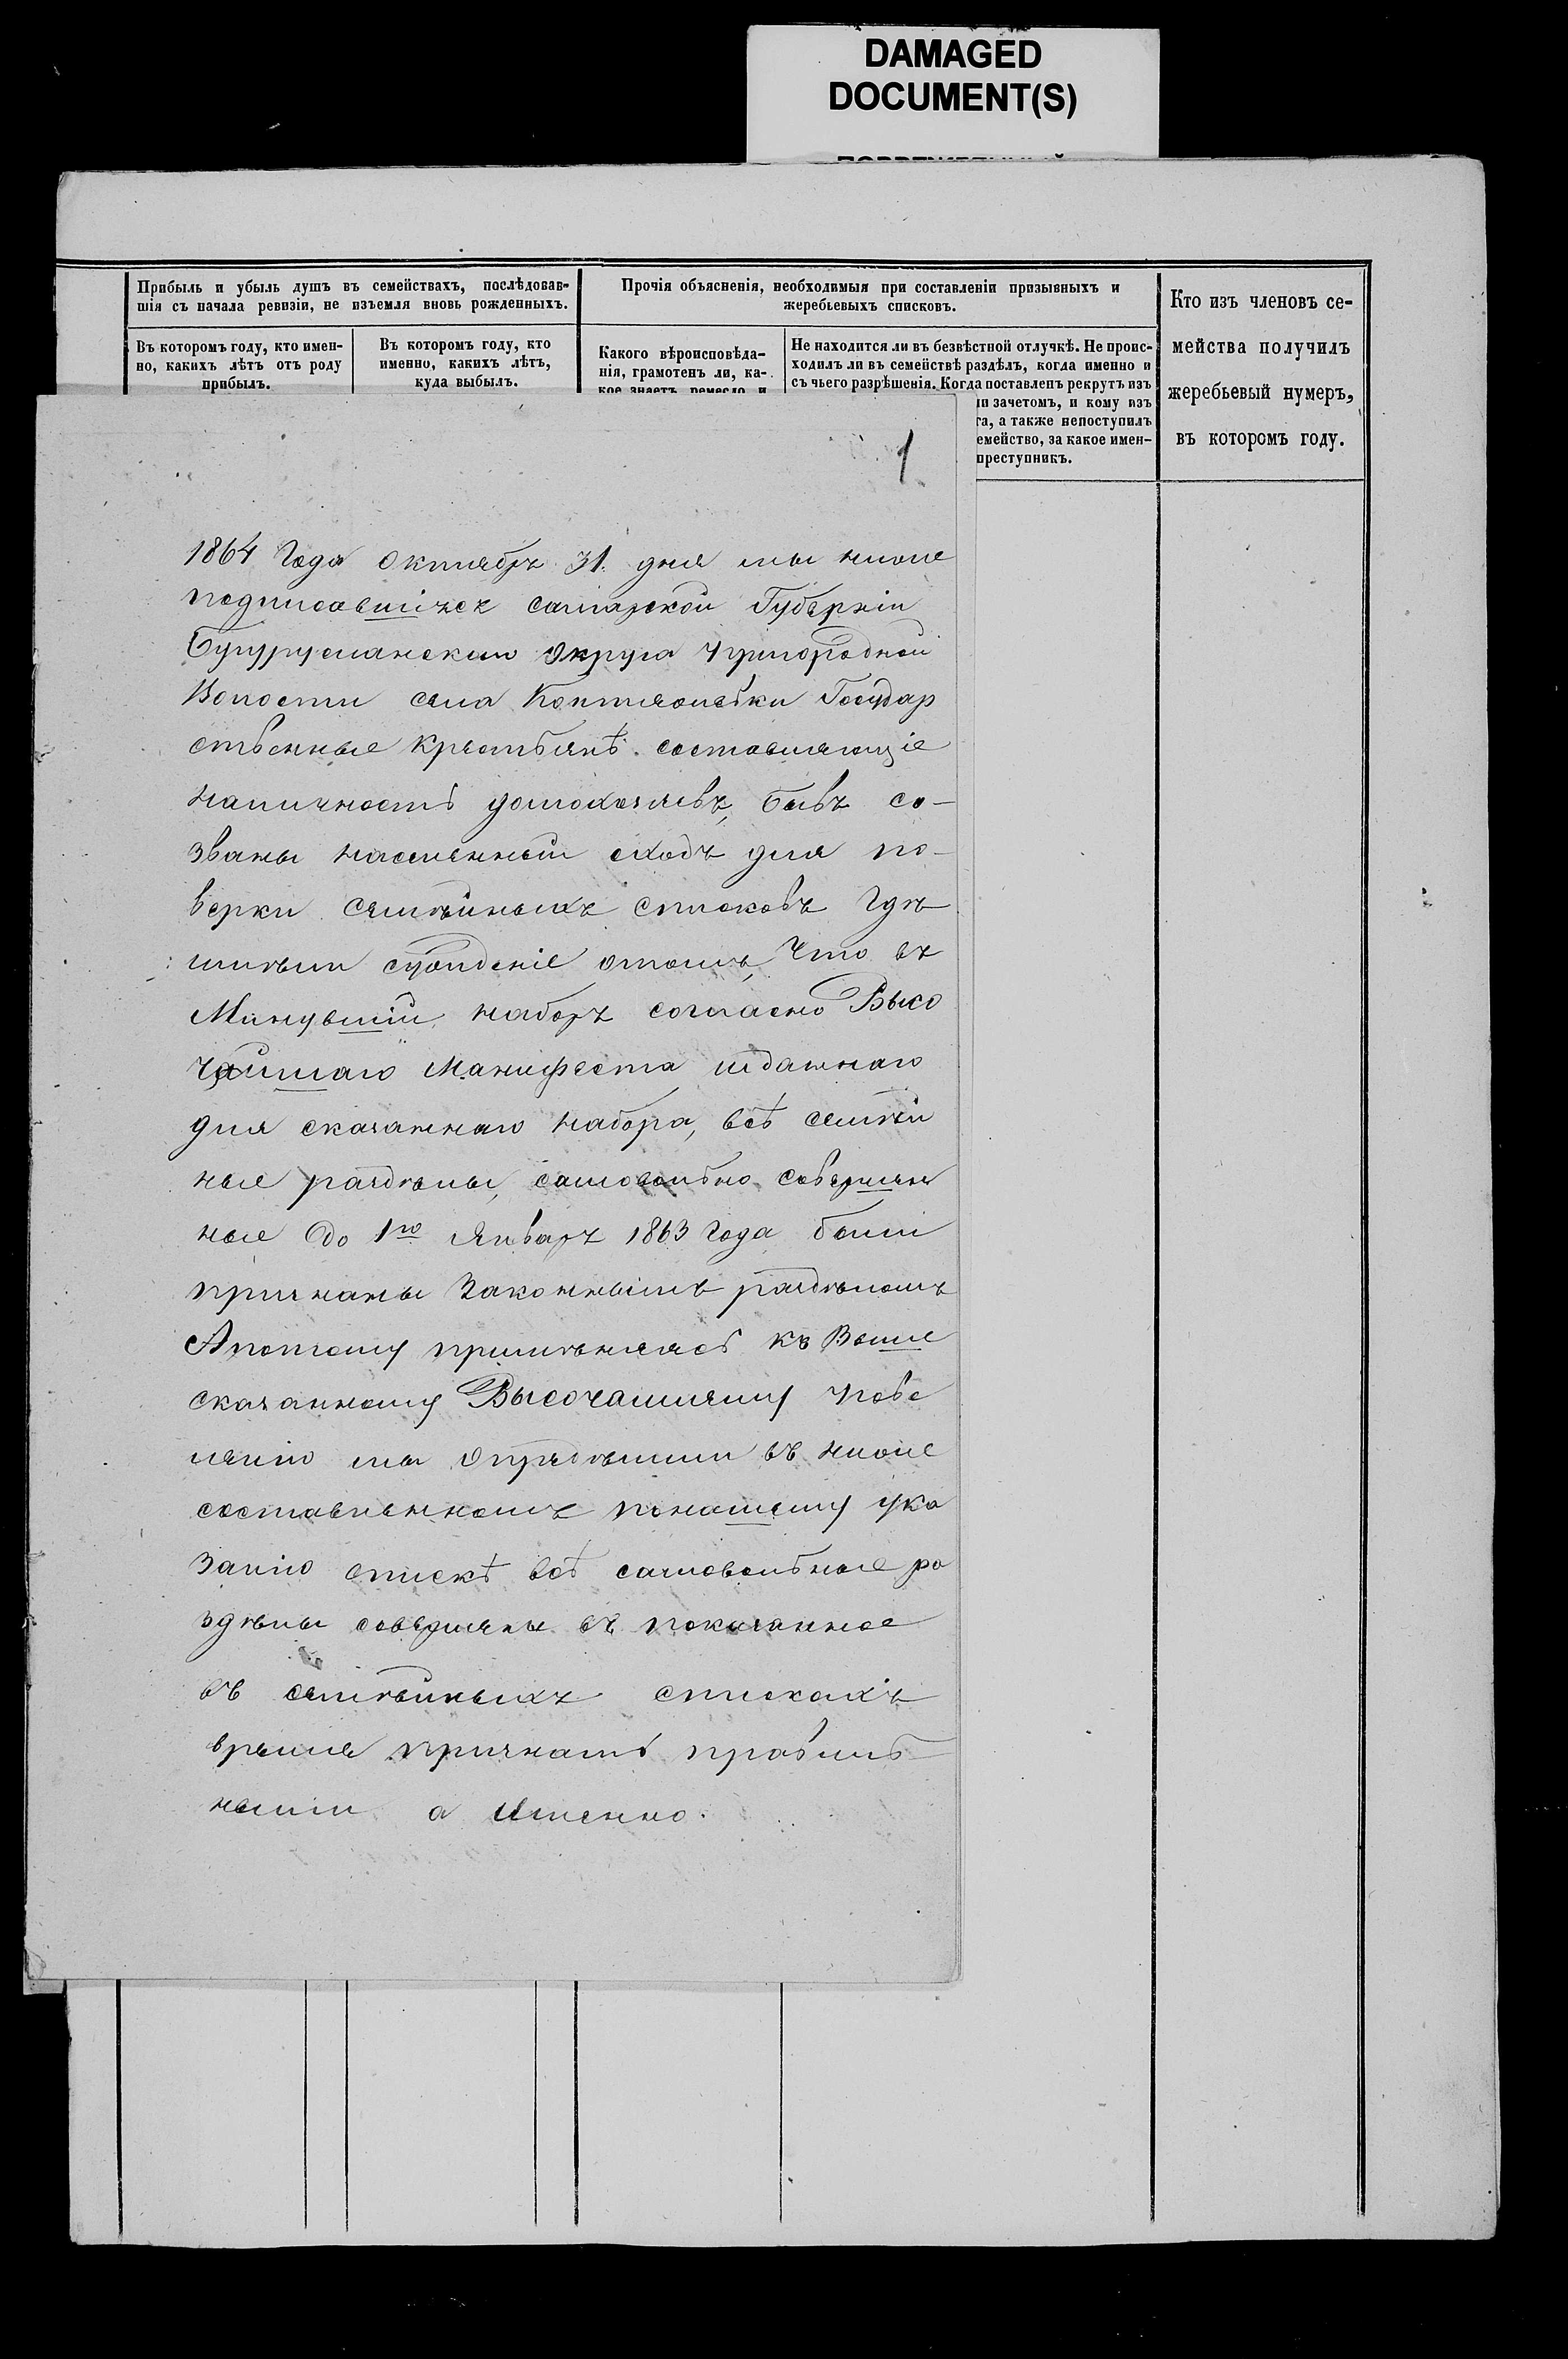 DAMAGED
DOCUMENT(S)
Прибыль и убыль душъ въ семействахъ, послѣдовав-
шія съ начала ревизіи, не изъемля вновь рожденныхъ.
Въ которомъ году, кто имен-
но, какихъ лѣтъ отъ роду
прибылъ.
Въ которомъ году, кто
именно, какихъ лѣтъ,
куда выбылъ.
Прочія объясненія, необходимыя при составленіи призывныхъ и
жеребьевыхъ списковъ.
Какого вѣроисповѣда-
нія, грамотенъ ли, ка-
кое знаетъ ремесло и
Не находится ли въ безвѣстной отлучкѣ. Не проис-
ходилъ ли въ семействѣ раздѣлъ, когда именно и
съ чьего разрѣшенія. Когда поставленъ рекрутъ изъ
ли зачетомъ, и кому изъ
га, а также непоступилъ
емейство, за какое имен-
преступникъ.
Кто изъ членовъ се-
мейства получилъ
жеребьевый нумеръ,
въ которомъ году.
1
1864 Года Октябръ 31. дня мы ниже
подписавшіхся самарской Губерніи
Бугурусланскаго Округа Пригородной
Волости села Коптяжевки Государ
ственные крестьянѣ. составляющіе
наличность домохозяевъ, бывъ со-
званы насельный сходъ для по-
верки семѣйныхъ списковъ Гдѣ
имѣли сужденіе отомъ, Что въ
Минувшій наборъ согласно Высо
чайшаго Манифеста изданнаго
для сказаннаго набора, всѣ семѣй
ные раздѣлы, самовольно совершен
ные До 1го Январъ 1863 Года были
признаны Законнымъ раздѣломъ
Апотому примѣняясь къ Выше
сказанному Высочашему пове
лению мы опредѣлили въ ниже
составленномъ понашему ука
занію спискѣ всѣ самовольные ра
здѣлы совершены въ показанное
въ семѣйныхъ спискахъ
время признать правиль
ными а Именно.